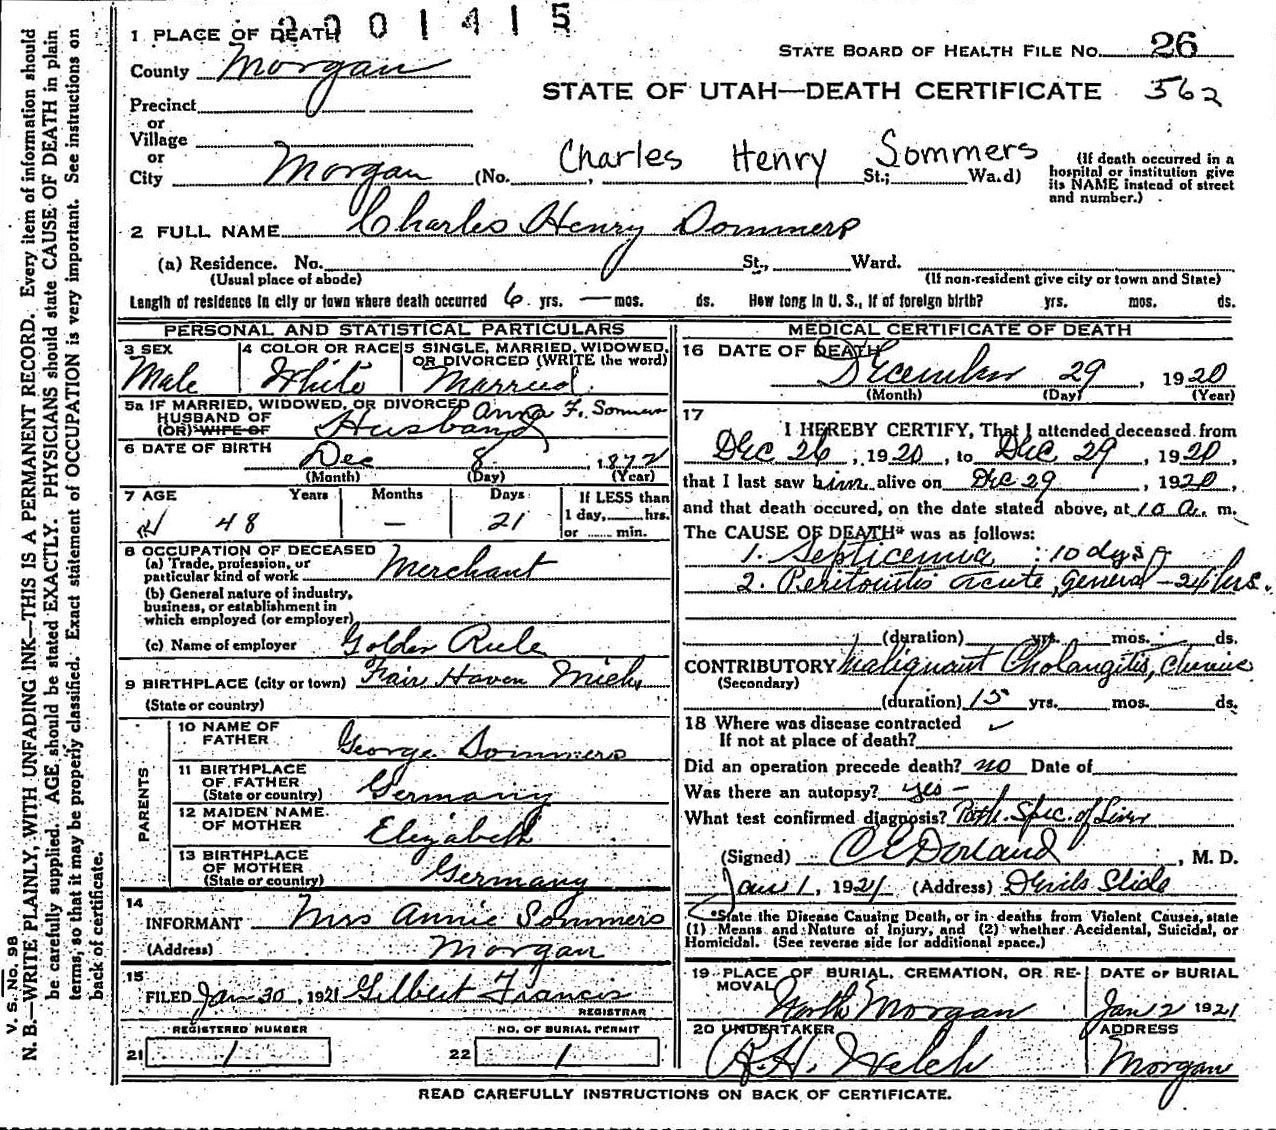 2001415
1 PLACE OF DEATH
STATE BOARD OF HEALTH FILE No. 26
County Morgan
STATE OF UTAH—DEATH CERTIFICATE 562
Precinct
or
Village
or
City Morgan (No. , Charles Henry Sommers St.; Ward)
(If death occurred in a hospital or institution give its NAME instead of street and number.)
2 FULL NAME Charles Henry Sommers
(a) Residence. No. St., Ward.
(Usual place of abode) (If non-resident give city or town and State)
Length of residence in city or town where death occurred 6 yrs. — mos. ds. How long in U. S., if of foreign birth? yrs. mos. ds.
PERSONAL AND STATISTICAL PARTICULARS
3 SEX 4 COLOR OR RACE 5 SINGLE, MARRIED, WIDOWED, OR DIVORCED (WRITE the word)
Male White Married.
5a IF MARRIED, WIDOWED, OR DIVORCED Anna F. Sommers
HUSBAND OF
(OR) WIFE OF Husband
6 DATE OF BIRTH Dec 8, 1872
(Month) (Day) (Year)
7 AGE Years Months Days If LESS than
48 — 21 1 day, hrs.
or min.
8 OCCUPATION OF DECEASED
(a) Trade, profession, or
particular kind of work Merchant
(b) General nature of industry,
business, or establishment in
which employed (or employer)
(c) Name of employer Golden Rule
9 BIRTHPLACE (city or town) Fair Haven Mich
(State or country)
PARENTS
10 NAME OF
FATHER George Sommers
11 BIRTHPLACE
OF FATHER
(State or country) Germany
12 MAIDEN NAME
OF MOTHER Elizabeth
13 BIRTHPLACE
OF MOTHER
(State or country) Germany
14
INFORMANT Mrs Annie Sommers
(Address) Morgan
15
FILED Jan 30, 1921 Gilbert Francis
REGISTRAR
REGISTERED NUMBER NO. OF BURIAL PERMIT
21 1 22 1
MEDICAL CERTIFICATE OF DEATH
16 DATE OF DEATH
December 29, 1920
(Month) (Day) (Year)
17
I HEREBY CERTIFY, That I attended deceased from
Dec 26, 1920, to Dec 29, 1920,
that I last saw him alive on Dec 29, 1920,
and that death occured, on the date stated above, at 10 a. m.
The CAUSE OF DEATH* was as follows:
1. Septicemia : 10 dys
2. Peritonitis acute, general - 24 hrs.
(duration) yrs. mos. ds.
CONTRIBUTORY Malignant Cholangitis, chronic
(Secondary)
(duration) 15 yrs. mos. ds.
18 Where was disease contracted
If not at place of death?
Did an operation precede death? no Date of
Was there an autopsy? yes -
What test confirmed diagnosis? Path. Spec. of Liver
(Signed) C E Dorland, M. D.
Jan 1, 1921 (Address) Devils Slide
*State the Disease Causing Death, or in deaths from Violent Causes, state
(1) Means and Nature of Injury, and (2) whether Accidental, Suicidal, or
Homicidal. (See reverse side for additional space.)
19 PLACE OF BURIAL, CREMATION, OR REMOVAL DATE OF BURIAL
North Morgan Jan 2 1921
20 UNDERTAKER ADDRESS
R. H. Welch Morgan
READ CAREFULLY INSTRUCTIONS ON BACK OF CERTIFICATE.
V. S. No. 98
N. B.—WRITE PLAINLY, WITH UNFADING INK—THIS IS A PERMANENT RECORD. Every item of information should
be carefully supplied. AGE should be stated EXACTLY. PHYSICIANS should state CAUSE OF DEATH in plain
terms, so that it may be properly classified. Exact statement of OCCUPATION is very important. See instructions on
back of certificate.